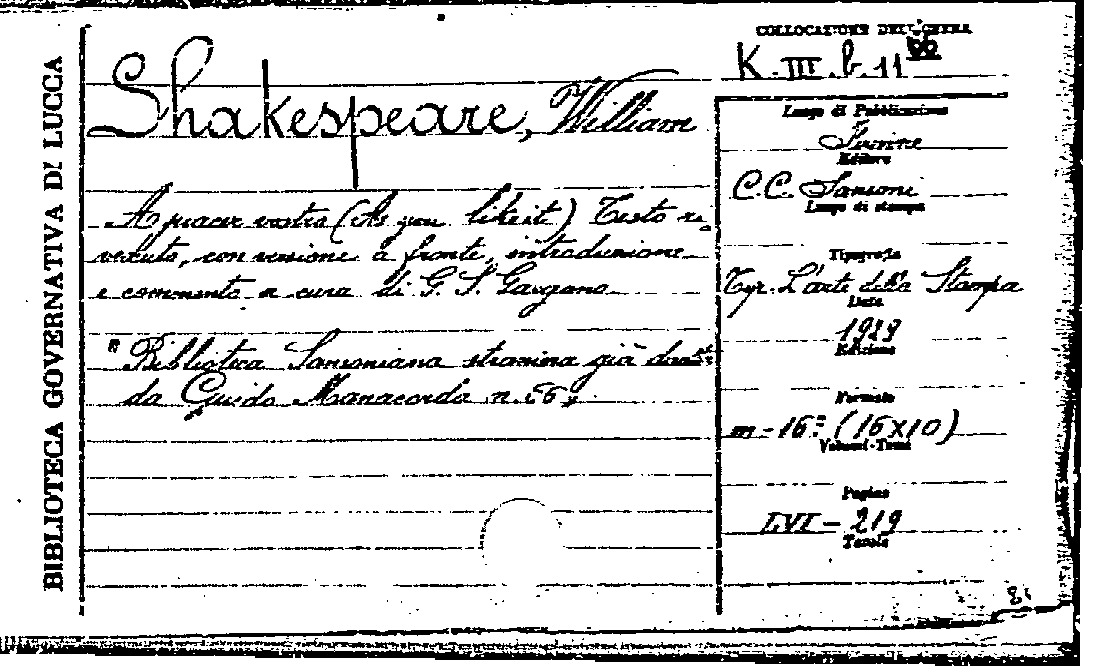 BIBLIOTECA GOVERNATIVA DI LUCCA
COLLOCAZIONE DELL'OPERA
K. III. b. 11 66
Shakespeare, William
A piacer vostro (As you like it) Testo ri-
veduto, con versione a fronte, introduzione
e commento a cura di G. S. Gargano
"Biblioteca Sansoniana straniera già
da Guido Manacorda n. 66"
Luogo di Pubblicazione
Firenze
Editore
C. C. Sansoni
Luogo di stampa
Tipografia
Tip. L'arte della Stampa
Data
Edizione
Formato
m-16° (16x10)
Volumi-Tomi
Pagine
LVI - 219
Tavole